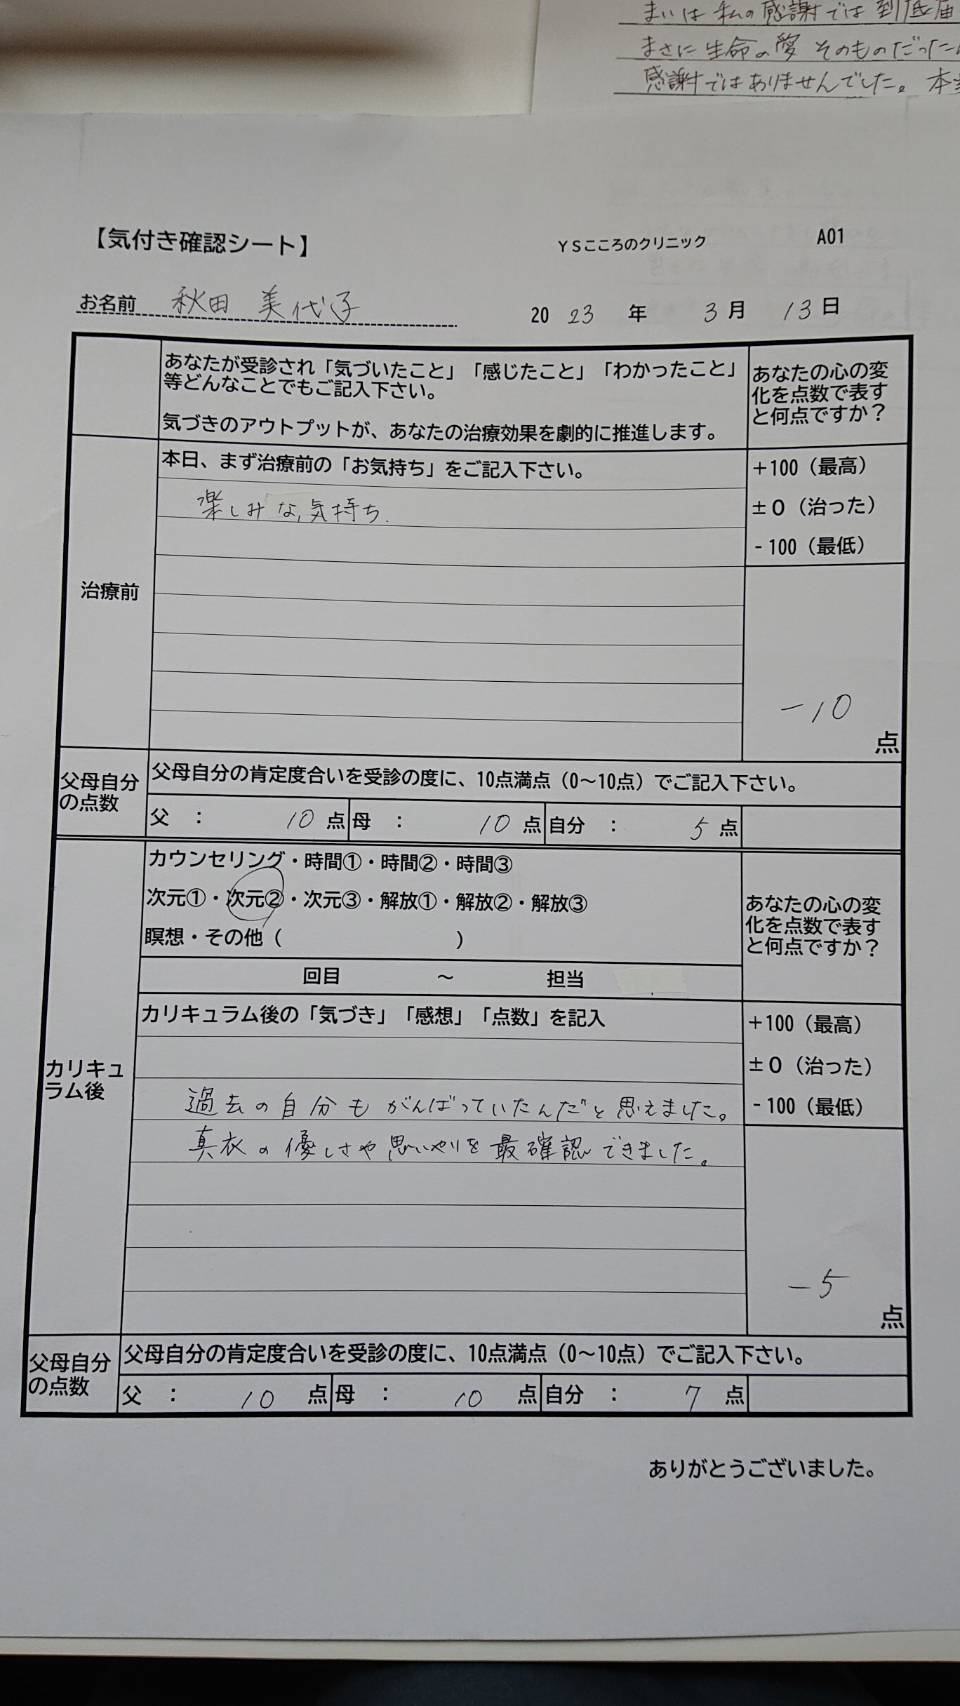 まいは私の感謝では到底届
まさに生命の愛そのものだった
感謝ではありませんでした。本
【気付き確認シート】
YSこころのクリニック
A01
お名前 秋田 美代子
2023年3月13日
あなたが受診され「気づいたこと」「感じたこと」「わかったこと」
等どんなことでもご記入下さい。
気づきのアウトプットが、あなたの治療効果を劇的に推進します。
あなたの心の変
化を点数で表す
と何点ですか？
治療前
本日、まず治療前の「お気持ち」をご記入下さい。
楽しみな気持ち
+100（最高）
±0（治った）
-100（最低）
-10
点
父母自分
の点数
父母自分の肯定度合いを受診の度に、10点満点（0～10点）でご記入下さい。
父 ： 10 点 母 ： 10 点 自分 ： 5 点
カリキュ
ラム後
カウンセリング・時間①・時間②・時間③
次元①・次元②・次元③・解放①・解放②・解放③
瞑想・その他（ ）
回目 ～ 担当
あなたの心の変
化を点数で表す
と何点ですか？
カリキュラム後の「気づき」「感想」「点数」を記入
過去の自分もがんばっていたんだと思えました。
真衣の優しさや思いやりを最確認できました。
+100（最高）
±0（治った）
-100（最低）
-5
点
父母自分
の点数
父母自分の肯定度合いを受診の度に、10点満点（0～10点）でご記入下さい。
父 ： 10 点 母 ： 10 点 自分 ： 7 点
ありがとうございました。